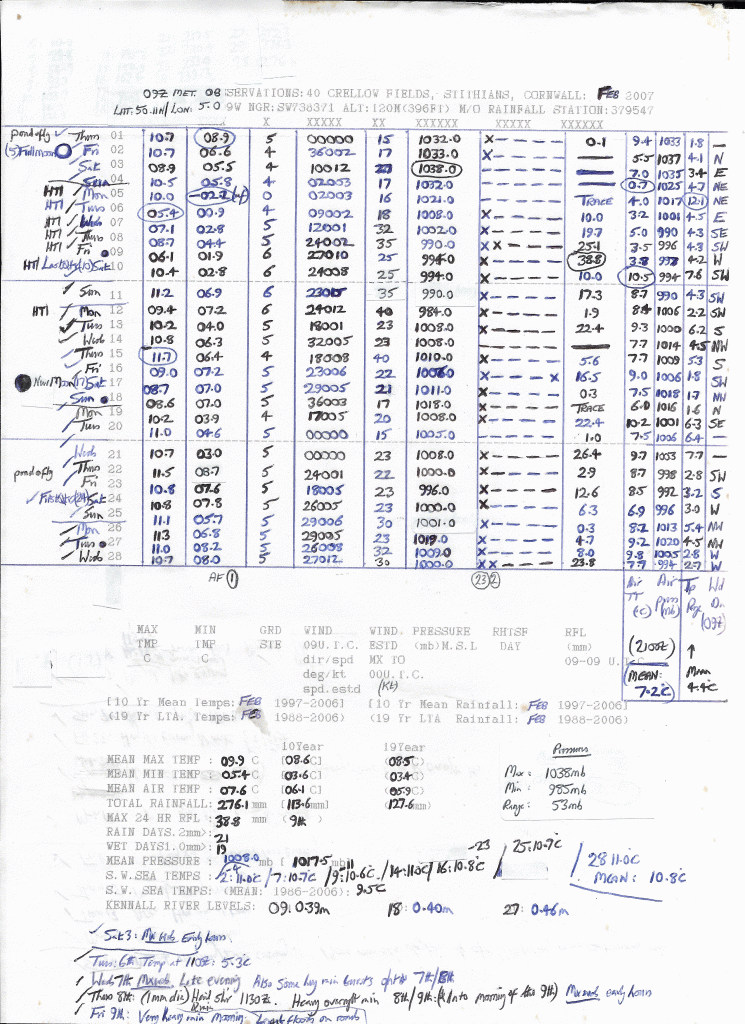 09Z MET. OBSERVATIONS:40 CRELLOW FIELDS, STITHIANS, CORNWALL: FEB 2007
LAT:50.11N/LON: 5.09W NGR:SW738371 ALT:120M(396FT) M/O RAINFALL STATION:379547
X XXXXX XX XXXXX XXXXX XXXXXX
Thurs 01 10.7 08.9 5 00000 15 1032.0 X---- 0.1 9.4 1033 1.8 —
Full moon Fri 02 10.7 06.6 4 36002 17 1033.0 X---- — 5.5 1037 4.1 N
Sat 03 08.9 05.5 4 10012 27 1038.0 ----- — 7.0 1035 3.4 E
Sun 04 10.5 05.8 4 02003 17 1032.0 ----- — 0.7 1025 4.7 NE
HTI Mon 05 10.0 0 02003 16 1021.0 ----- TRACE 4.0 1017 12.1 NE
HTI Tues 06 05.4 00.9 4 09002 18 1008.0 X---- 10.0 3.2 1001 4.5 E
HTI Weds 07 07.1 02.8 5 12001 32 1002.0 X---- 19.7 5.0 990 4.3 SE
HTI Thurs 08 08.7 04.4 5 24002 35 990.0 XX---- 25.1 3.5 996 4.3 SW
HTI Fri 09 06.1 01.9 6 27010 25 994.0 X---- 38.8 3.8 998 4.2 W
HTI Last Qtr (10) Sat 10 10.4 02.8 6 24008 25 994.0 X---- 10.0 10.5 994 7.6 SW
Sun 11 11.2 06.9 6 35 990.0 X---- 17.3 8.7 990 4.3 SW
HTI Mon 12 09.4 07.2 6 24012 40 984.0 X---- 1.9 8.4 1006 2.2 SW
Tues 13 10.2 04.0 5 18001 23 1008.0 X---- 22.4 9.3 1000 6.2 S
Wed 14 10.8 06.3 5 32005 23 1008.0 ----- — 7.7 1014 4.5 NW
Thurs 15 11.7 06.4 4 18008 40 1010.0 X---- 5.6 7.7 1009 5.3 S
Fri 16 09.0 07.2 5 23006 22 1006.0 X----X 16.5 9.0 1006 1.8 SW
New Moon (17) Sat 17 08.7 07.0 5 29005 21 1011.0 X---- 0.3 7.5 1018 1.7 NW
Sun 18 08.6 07.0 5 36003 17 1018.0 X---- TRACE 6.0 1016 1.6 N
Mon 19 10.2 03.9 4 17005 20 1008.0 X---- 22.4 10.2 1001 6.3 SE
Tues 20 11.0 04.6 5 00000 15 1005.0 X---- 1.0 7.5 1006 6.4 —
Weds 21 10.7 03.0 5 00000 23 1008.0 X---- 26.4 9.7 7.7 —
Thurs 22 11.5 08.7 5 24001 22 1000.0 X---- 2.9 8.7 998 2.8 SW
Fri 23 10.8 07.6 5 18005 23 996.0 X---- 12.6 8.5 992 3.2 S
First Qtr (24) Sat 24 10.8 07.8 5 26005 23 1000.0 X---- 6.3 6.9 996 3.0 W
Sun 25 11.1 05.7 5 29006 30 1001.0
Mon 26 11.3 06.8 5 29005 23 1019.0 X---- 0.3 8.2 1013 5.4 NW
Tues 27 11.0 08.2 5 26008 32 1009.0 X---- 4.7 9.2 1020 4.5 NW
Weds 28 10.7 08.0 5 27012 30 1000.0 XX---- 23.8 7.7 994 2.7 W
AF 1 23 2
Air TT (c) Air Press (mb) Tp Rge Wd Dn (09Z)
MAX MIN GRD WIND WIND PRESSURE RHTSF RFL
TMP TMP STE 09U.T.C. ESTD (mb)M.S.L DAY (mm)
C C dir/spd MX TO 09-09 U.T.C
deg/kt 00U.T.C.
spd.estd (Kt)
(2100Z) MEAN: 7.2°C
Mean 4.4°C
[10 Yr Mean Temps: FEB 1997-2006] [10 Yr Mean Rainfall: FEB 1997-2006]
(19 Yr LTA. Temps: FEB 1988-2006) (19 Yr LTA Rainfall: FEB 1988-2006)
10Year 19Year
MEAN MAX TEMP : 09.9 C [08.6 C] (08.5 C)
MEAN MIN TEMP : 05.4 C [03.6 C] (03.4 C)
MEAN AIR TEMP : 07.6 C [06.1 C] (05.9 C)
TOTAL RAINFALL: 276.1 mm [113.6mm] (127.6mm)
MAX 24 HR RFL : 38.8 mm (9th )
RAIN DAYS.2mm>: 21
WET DAYS1.0mm>: 19
MEAN PRESSURE : 1008.0 mb [ 1017.5
Pressures
Max: 1038mb
Min: 985mb
Range: 53mb
S.W.SEA TEMPS: 2:11.0c /7:10.7c /9:10.6c /14:11.0c /16:10.8c -23 / 25:10.9c / 28 11.0c
MEAN: 10.8c
S.W. SEA TEMPS: (MEAN: 1986-2006): 9.5c
KENNALL RIVER LEVELS: 09: 0.39m 18: 0.40m 27: 0.46m
Sat 3: Early hours.
Tues: 6th Temp at 1103Z: 5.3c
Weds 7th Late evening Also some hvy rain bursts 7th/8th
Thurs 8th: (1mm dia) Hail shr 1130Z. Heavy overnight rain 8th/9th: into morning of the 9th) early hours
Fri 9th: Very heavy rain morning: Local floods on roads